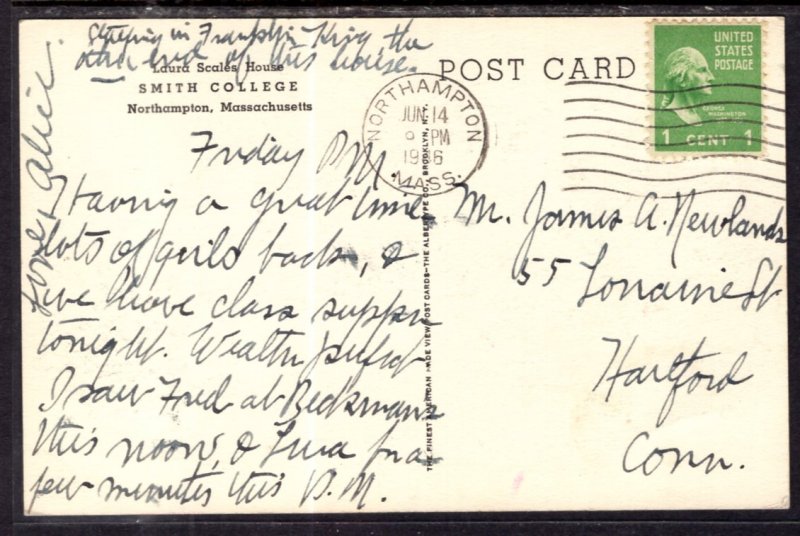 Staying in Franklin King the
other end of this house.
Laura Scales House
SMITH COLLEGE
Northampton, Massachusetts
POST CARD
UNITED
STATES
POSTAGE
GEORGE
WASHINGTON
1 CENT 1
NORTHAMPTON
JUN 14
PM
MASS.
Friday P.M.
Having a great time
lots of girls back, &
we have class supper
tonight. Weather perfect
I saw Fred at Beckmans
this noon, & for a
few minutes this P.M.
Love, Alice.
THE FINEST AMERICAN MADE VIEW POST CARDS—THE ALBERTYPE CO., BROOKLYN, N.Y.
Mr. James A. Newlands
55 Lorraine St
Hartford
Conn.